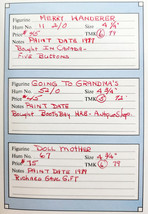 Figurine MERRY WANDERER
Hum No. 11 2/0 Size 4 3/4"
Price $ TMK 6 79
Notes PAINT DATE 1987
BOUGHT IN CANADA.
FIVE BUTTONS
Figurine GOING TO GRANDMA'S
Hum No. 52/0 Size 4 3/4"
Price $45 TMK
Notes PAINT DATE
BOUGHT BOOTHBAY HRB - ANTIQUE SHOP.
Figurine DOLL MOTHER
Hum No. 67 Size 4 3/4"
Price $ 75 TMK 6 79
Notes PAINT DATE 1989
RICHARD GAVE GIFT